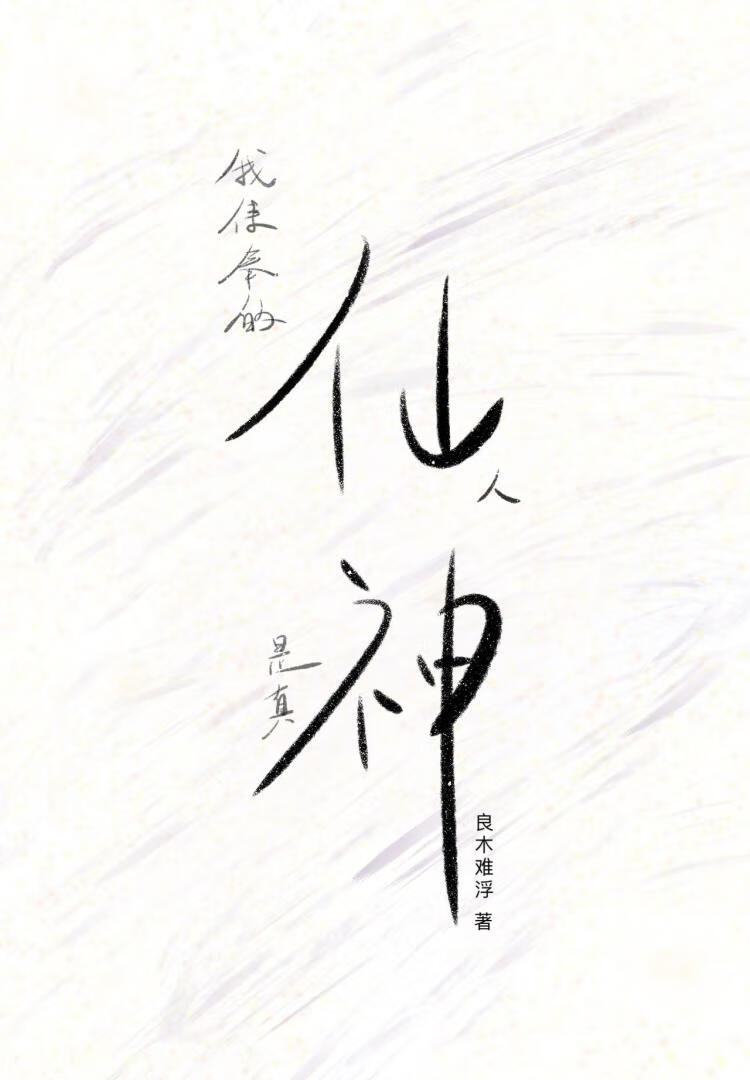 我侍奉的
仙人
是真
神
良木难浮 著